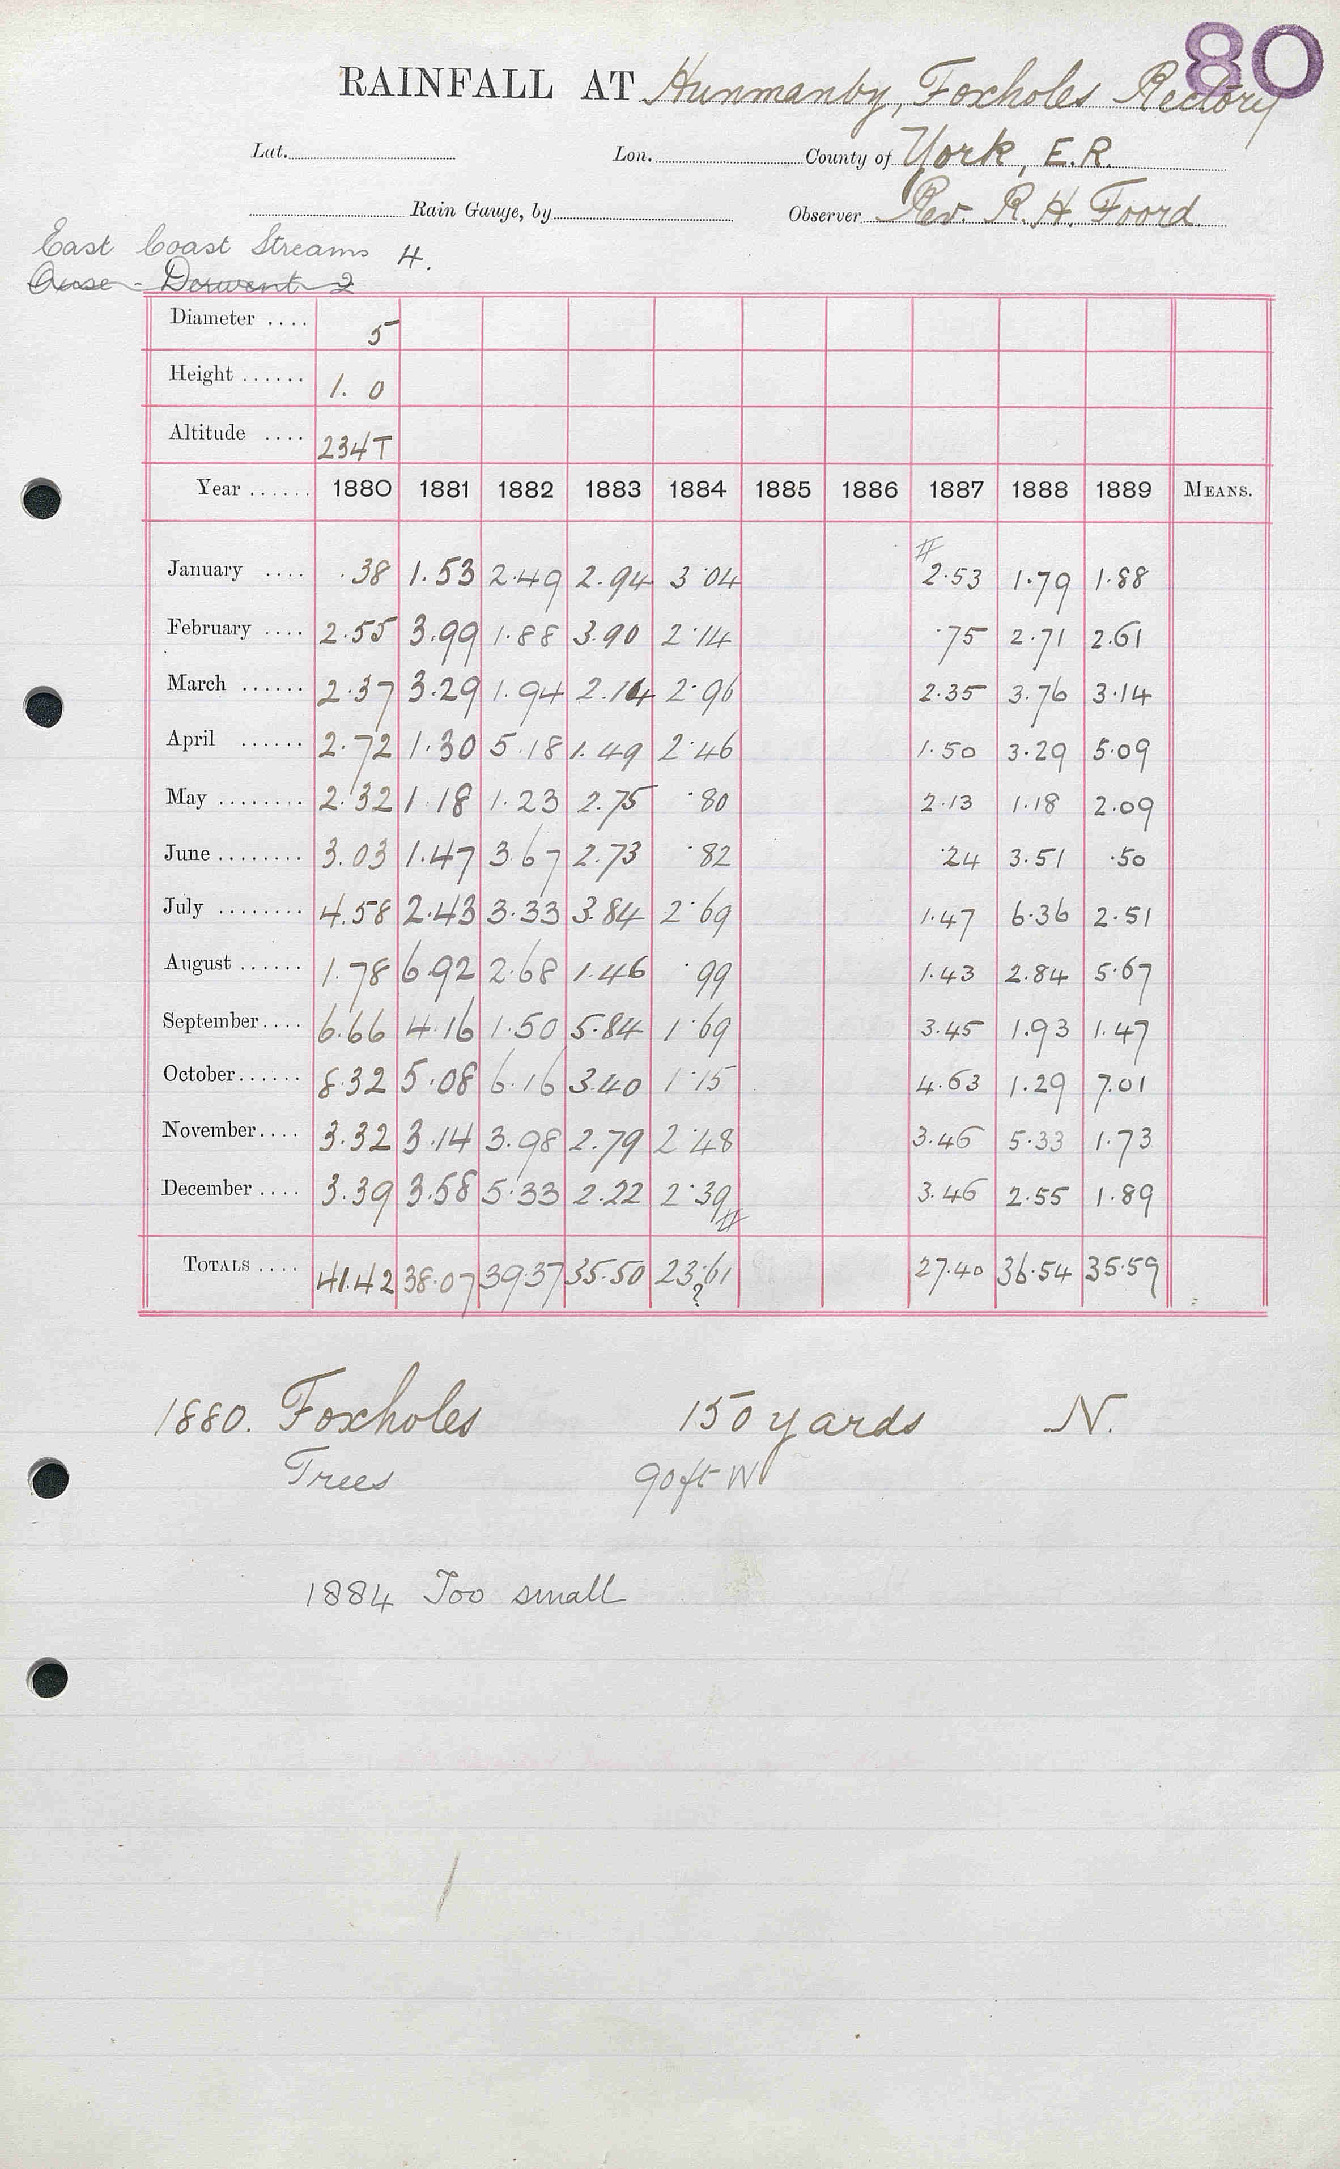 80
RAINFALL AT Hunmanby, Foxholes Rectory
Lat. Lon. County of York, E.R.
Rain Gauge, by Observer Rev. R. H. Foord.
East Coast Streams 4.
Ouse - Derwent 2
Diameter .... 5
Height ...... 1. 0
Altitude .... 234T
Year ...... 1880 1881 1882 1883 1884 1885 1886 1887 1888 1889 MEANS.
#
January .... .38 1.53 2.49 2.94 3.04 2.53 1.79 1.88
February .... 2.55 3.99 1.88 3.90 2.14 .75 2.71 2.61
March ...... 2.37 3.29 1.94 2.14 2.96 2.35 3.76 3.14
April ...... 2.72 1.30 5.18 1.49 2.46 1.50 3.29 5.09
May ........ 2.32 1.18 1.23 2.75 .80 2.13 1.18 2.09
June ........ 3.03 1.47 3.67 2.73 .82 .24 3.51 .50
July ........ 4.58 2.43 3.33 3.84 2.69 1.47 6.36 2.51
August ...... 1.78 6.92 2.68 1.46 .99 1.43 2.84 5.67
September.... 6.66 4.16 1.50 5.84 1.69 3.45 1.93 1.47
October...... 8.32 5.08 6.16 3.40 1.15 4.63 1.29 7.01
November.... 3.32 3.14 3.98 2.79 2.48 3.46 5.33 1.73
December .... 3.39 3.58 5.33 2.22 2.39 3.46 2.55 1.89
#
TOTALS .... 41.42 38.07 39.37 35.50 23.61 27.40 36.54 35.59
?
1880. Foxholes 150 yards N.
Trees 90ft W
1884 Too small